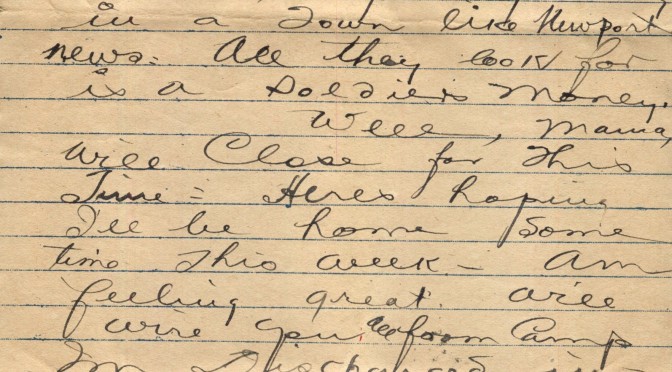 in a Town like Newport
news. All they look for
is a Soldiers Money.
Well, Mama,
will Close for This
Time = Heres hoping
I'll be home Some
time This week - Am
feeling great. will
wire you from Camp